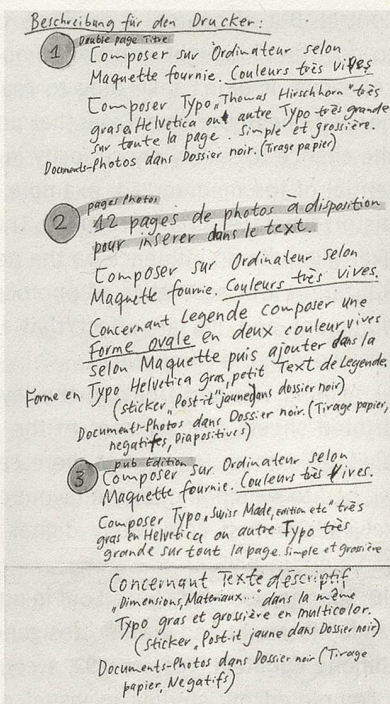 Beschreibung für den Drucker:
1 Double page Titre
Composer sur Ordinateur selon
Maquette fournie. Couleurs très vives
Composer Typo „Thomas Hirschhorn" très
gras à Helvetica ou autre Typo très grande
sur toute la page. Simple et grossière.
Documents-Photos dans Dossier noir. (Tirage papier)
2 pages Photos
12 pages de photos à disposition
pour insérer dans le text.
Composer sur Ordinateur selon
Maquette fournie. Couleurs très vives.
Concernant Legende composer une
Forme ovale en deux couleur vives
selon Maquette puis ajouter dans la
Forme en Typo Helvetica gras, petit Text de Legende.
(sticker „Post-it" jaune dans dossier noir)
Documents-Photos dans Dossier noir. (Tirage papier,
negatifs, Diapositives)
3 pub Edition
Composer sur Ordinateur selon
Maquette fournie. Couleurs très Vives.
Composer Typo „Swiss Made, Edition etc" très
gras en Helvetica ou autre Typo très
grande sur tout la page. Simple et grossière
Concernant Texte déscriptif
„Dimensions, Materiaux..." dans la même
Typo gras et grossière en multicolor.
(sticker „Post-it jaune dans Dossier noir)
Documents-Photos dans Dossier noir (Tirage
papier, Negatifs)